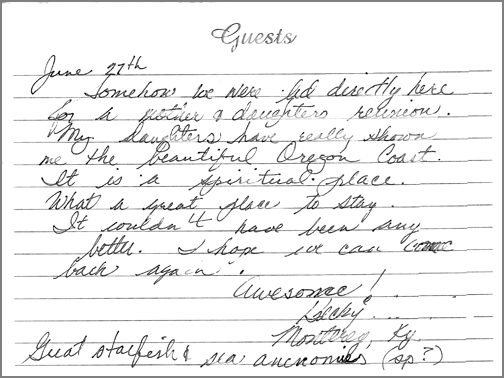 Guests
June 27th
Somehow we were led directly here
for a mother & daughters reunion.
My daughters have really shown
me the beautiful Oregon Coast.
It is a spiritual place.
What a great place to stay.
It couldn't have been any
better. I hope we can come
back again.
Awesome!
Becky
Ky.
Great starfish & sea anenomies (sp?)